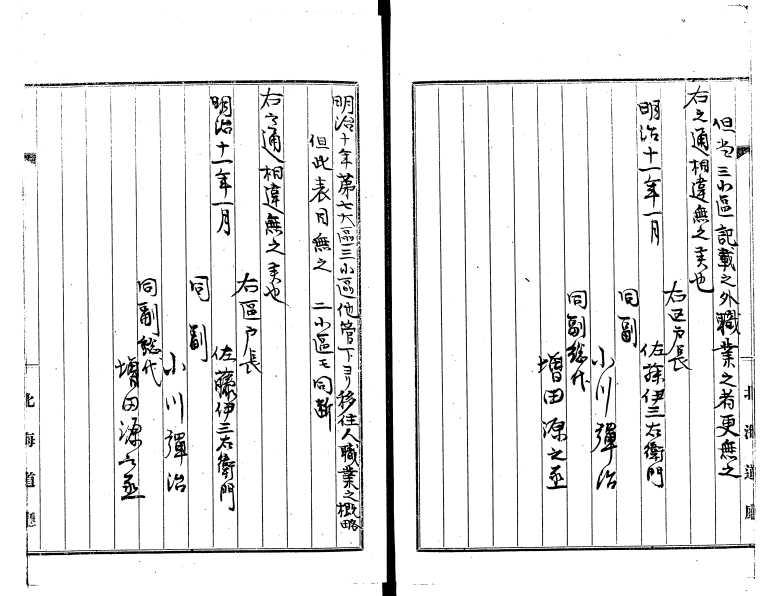 但当三小區記載之外職業之者更無之
右之通相違無之候也
明治十一年一月
右区戸長
佐藤伊三右衛門
同副
小川彈治
同副総代
増田源之丞
北海道廳
明治十年第七大區三小區他管下ヨリ移住人職業之概略
但此表目無之 二小區モ同断
右之通相違無之候也
明治十一年一月
右區戸長
佐藤伊三右衛門
同副
小川彈治
同副総代
増田源之丞
北海道廳